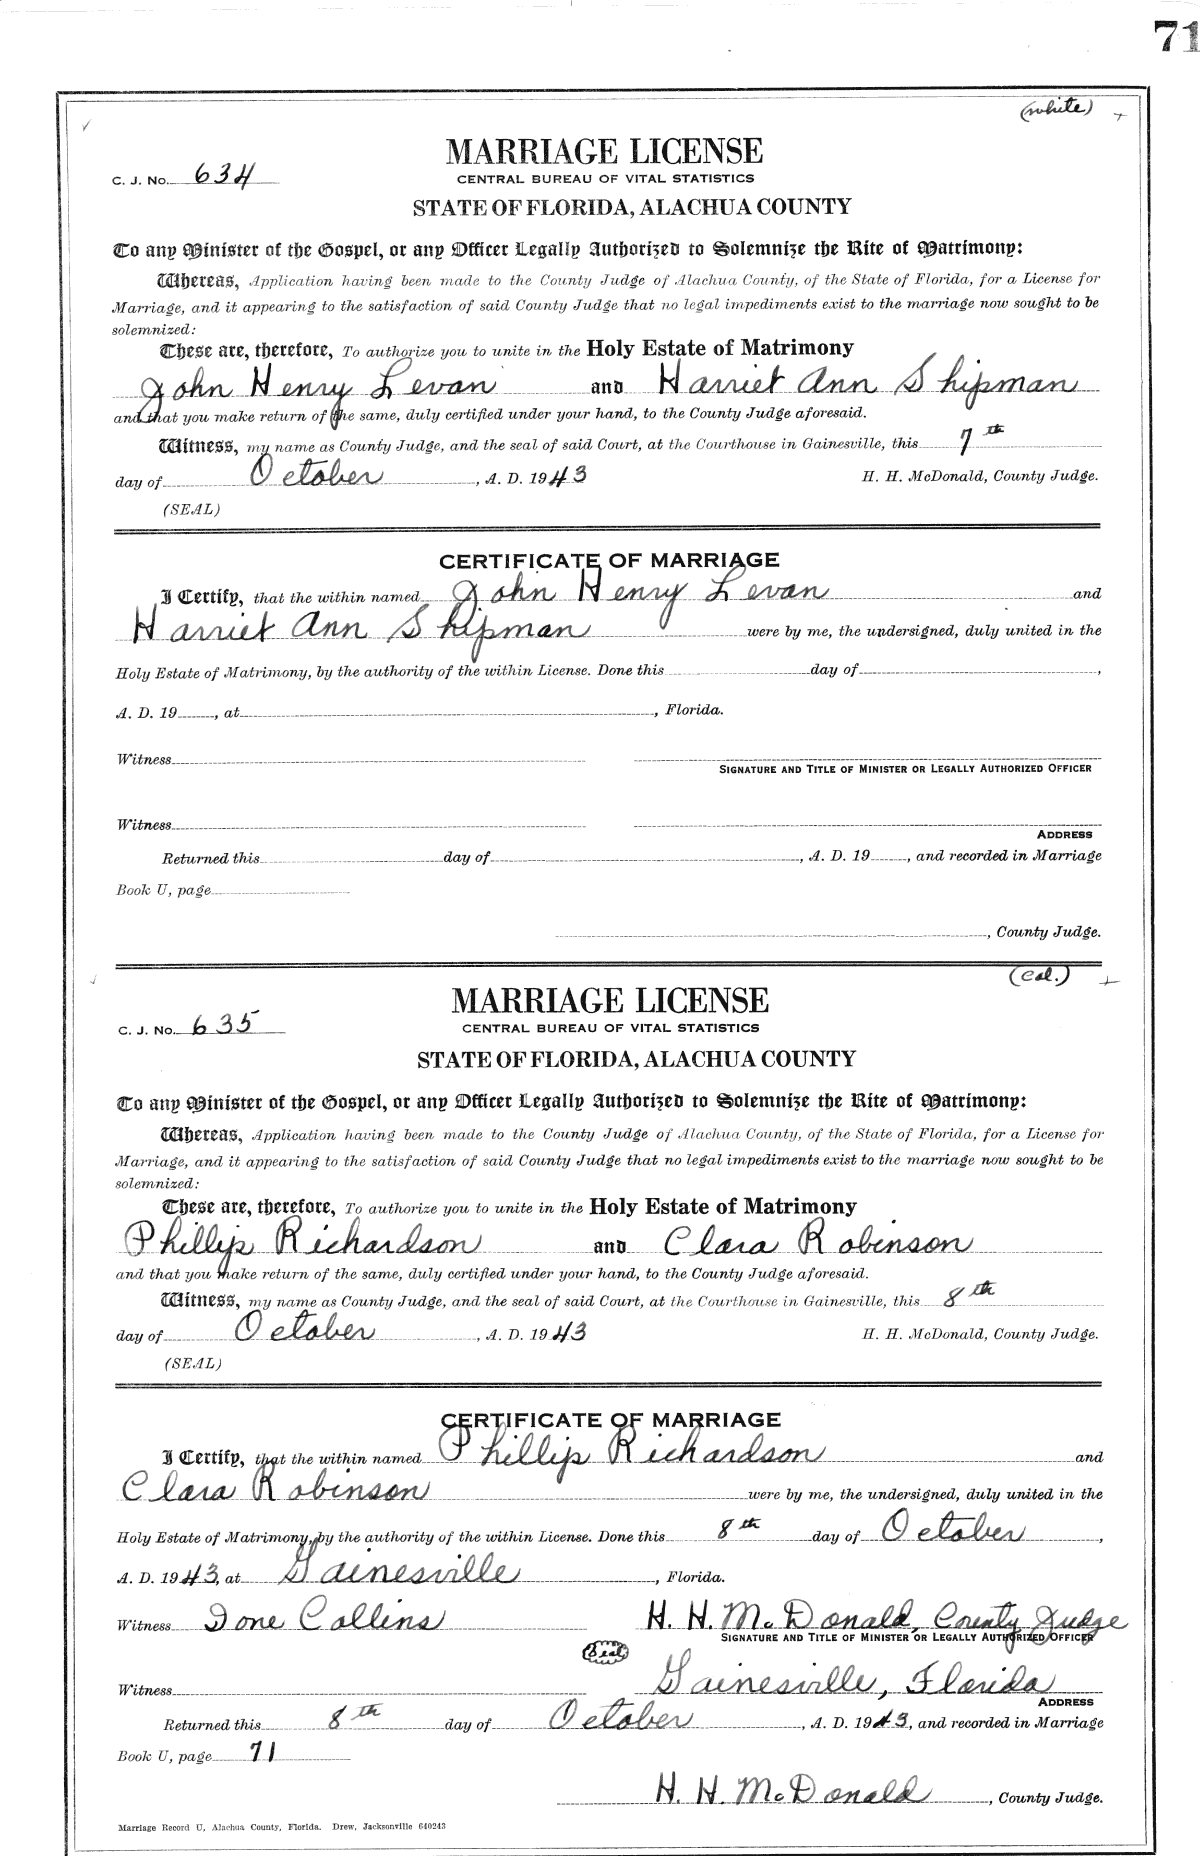 71
(white)
MARRIAGE LICENSE
C. J. No. 634
CENTRAL BUREAU OF VITAL STATISTICS
STATE OF FLORIDA, ALACHUA COUNTY
To any Minister of the Gospel, or any Officer Legally Authorized to Solemnize the Rite of Matrimony:
Whereas, Application having been made to the County Judge of Alachua County, of the State of Florida, for a License for
Marriage, and it appearing to the satisfaction of said County Judge that no legal impediments exist to the marriage now sought to be
solemnized:
These are, therefore, To authorize you to unite in the Holy Estate of Matrimony
John Henry Levan and Harriet Ann Shipman
and that you make return of the same, duly certified under your hand, to the County Judge aforesaid.
Witness, my name as County Judge, and the seal of said Court, at the Courthouse in Gainesville, this 7th
day of October, A. D. 1943 H. H. McDonald, County Judge.
(SEAL)
CERTIFICATE OF MARRIAGE
I Certify, that the within named John Henry Levan and
Harriet Ann Shipman were by me, the undersigned, duly united in the
Holy Estate of Matrimony, by the authority of the within License. Done this day of ,
A. D. 19 , at , Florida.
Witness
SIGNATURE AND TITLE OF MINISTER OR LEGALLY AUTHORIZED OFFICER
Witness
ADDRESS
Returned this day of , A. D. 19 , and recorded in Marriage
Book U, page
, County Judge.
(Col.)
MARRIAGE LICENSE
C. J. No. 635
CENTRAL BUREAU OF VITAL STATISTICS
STATE OF FLORIDA, ALACHUA COUNTY
To any Minister of the Gospel, or any Officer Legally Authorized to Solemnize the Rite of Matrimony:
Whereas, Application having been made to the County Judge of Alachua County, of the State of Florida, for a License for
Marriage, and it appearing to the satisfaction of said County Judge that no legal impediments exist to the marriage now sought to be
solemnized:
These are, therefore, To authorize you to unite in the Holy Estate of Matrimony
Phillip Richardson and Clara Robinson
and that you make return of the same, duly certified under your hand, to the County Judge aforesaid.
Witness, my name as County Judge, and the seal of said Court, at the Courthouse in Gainesville, this 8th
day of October, A. D. 1943 H. H. McDonald, County Judge.
(SEAL)
CERTIFICATE OF MARRIAGE
I Certify, that the within named Phillip Richardson and
Clara Robinson were by me, the undersigned, duly united in the
Holy Estate of Matrimony, by the authority of the within License. Done this 8th day of October,
A. D. 1943, at Gainesville, Florida.
Witness Ione Collins H. H. McDonald, County Judge
SIGNATURE AND TITLE OF MINISTER OR LEGALLY AUTHORIZED OFFICER
(Seal)
Witness Gainesville, Florida
ADDRESS
Returned this 8th day of October, A. D. 1943, and recorded in Marriage
Book U, page 71
H. H. McDonald, County Judge.
Marriage Record U, Alachua County, Florida. Drew, Jacksonville 640243